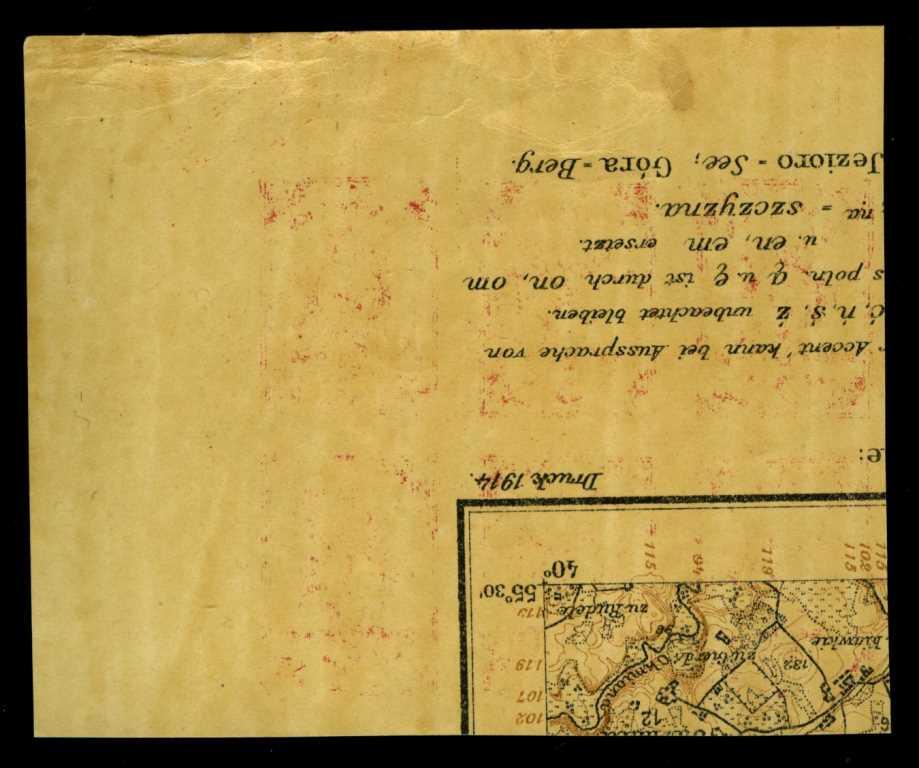 12
102
107
132
119
Okmiana
98
zu Rudele
113
55°30'
40°
115
102
115
119
94
115
Druck 1914.
e:
Accent' kann bei Aussprache von
ć, ń, ś, ż unbeachtet bleiben.
s poln. ą u. ę ist durch on, om
u. en, em ersetzt.
na = szczyzna.
Jezioro = See; Góra = Berg.